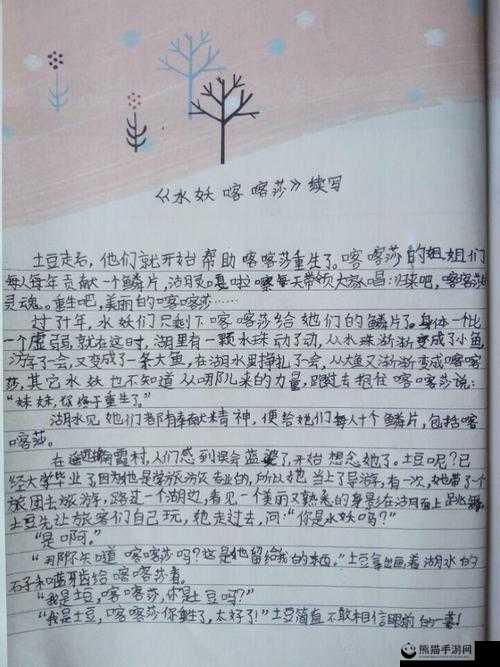 《水妖喀喀莎》续写
土豆走后，他们就开始帮助喀喀莎重生了。喀喀莎的姐姐们
每人每年贡献一个鳞片，
天带领大家唱：归来吧，喀喀莎的
灵魂。重生吧，美丽的喀喀莎……
过了几年，水妖们只剩下喀喀莎给她们的鳞片了。身体一个比
一个虚弱，就在这时，湖里有一颗水珠动了动，从水珠渐渐变成了小鱼，
游了一会，又变成了一条大鱼，在湖水里挣扎了一会，从大鱼又渐渐变成喀喀
莎。其它水妖也不知道从哪儿来的力量，跑过去抱住喀喀莎说：
“妹妹，你终于重生了。”
湖水见她们都有奉献精神，便给她们每人十个鳞片，包括喀
喀莎。
在遥远的
霞村，人们感到
开始想念她了。土豆呢？已
经大学毕业了因为他是学旅游专业的，所以她当上了导游，有一次，她带了个
旅团去旅游，路过一个湖边，看见一个美丽又熟悉的身影在湖月面上跳舞，
土豆先让旅客们自己玩，她走过去，问：“你是水妖吗？”
“是啊。”
喀喀莎吗？这是她留给我的东西。”土豆拿出画着湖水的
石子和
牙齿给喀喀莎看。
“我是土豆，喀喀莎，你是土豆吗？”
“我是土豆，喀喀莎你重生了，太好了！”土豆简直不敢相信眼前的一幕！
熊猫手游网